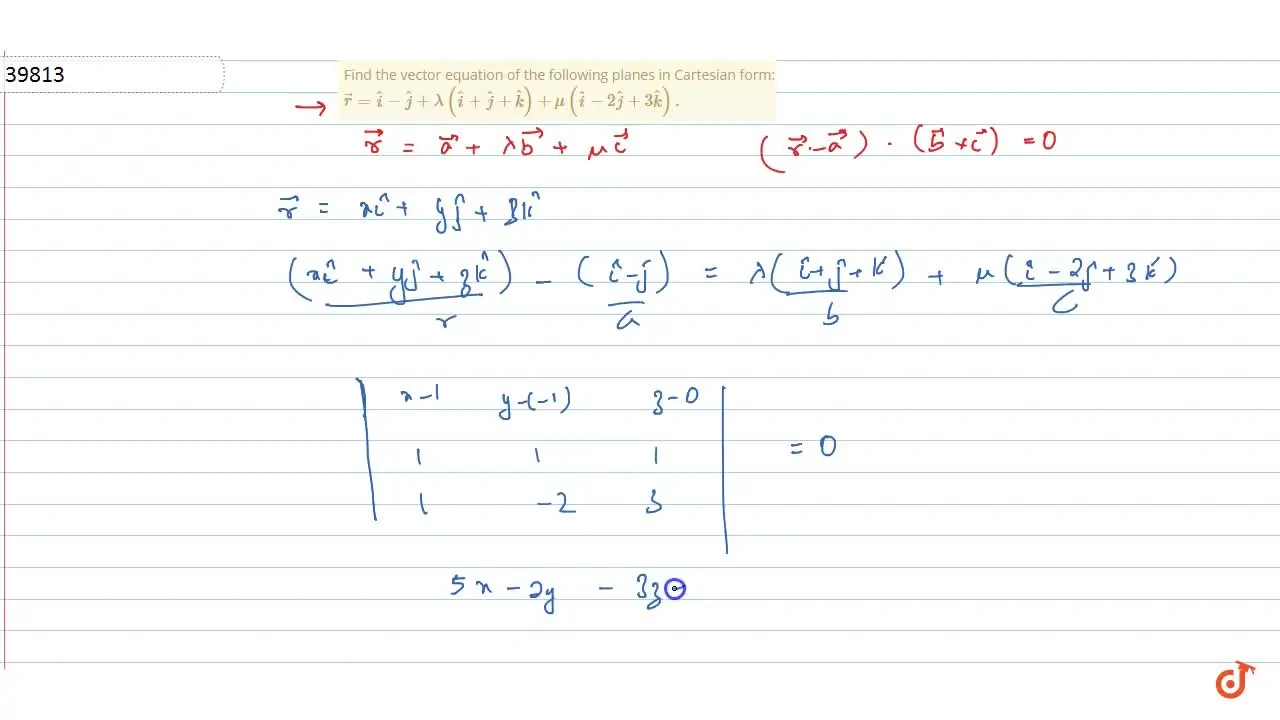 39813
Find the vector equation of the following planes in Cartesian form:
r⃗ = î − ĵ + λ(î + ĵ + k̂) + μ(î − 2ĵ + 3k̂).
→
r⃗ = a⃗ + λb⃗ + μc⃗ (r⃗ - a⃗) . (b⃗ + c⃗) = 0
r⃗ = xî + yĵ + zk̂
(xî + yĵ + zk̂) - (î - ĵ) = λ(î + ĵ + k̂) + μ(î - 2ĵ + 3k̂)
r a b c
| x-1 y-(-1) z-0 |
| 1 1 1 | = 0
| 1 -2 3 |
5x - 2y - 3z